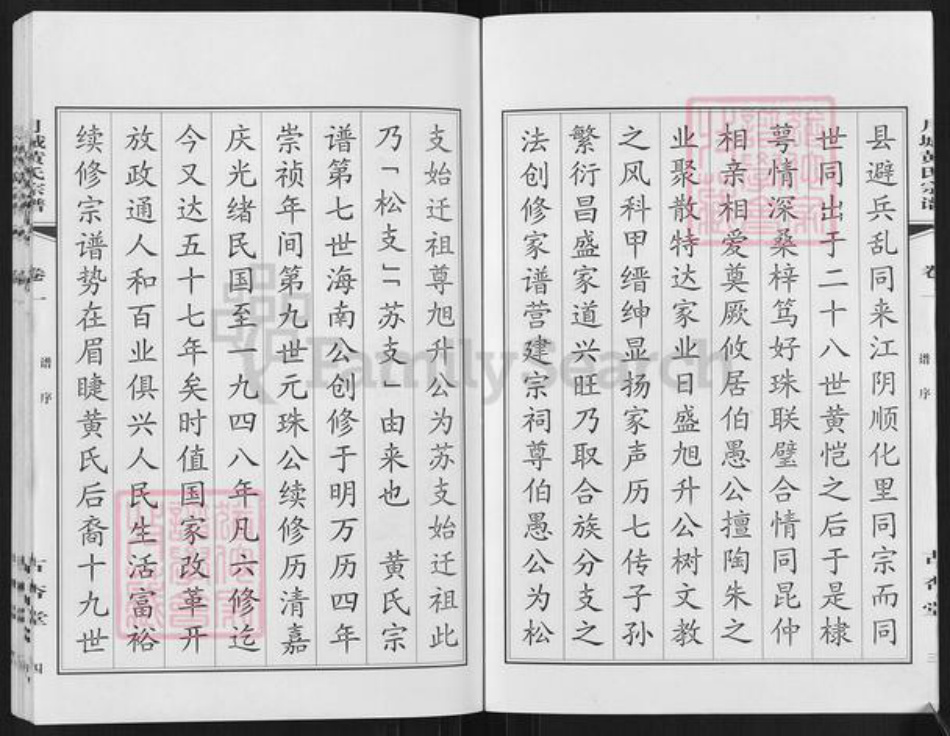 县避兵乱同来江阴顺化里同宗而同
世同出于二十八世黄恺之后于是棣
萼情深桑梓笃好珠联璧合情同昆仲
相亲相爱奠厥攸居伯愚公擅陶朱之
业聚散特达家业日盛旭升公树文教
之风科甲缙绅显扬家声历七传子孙
繁衍昌盛家道兴旺乃取合族分支之
法创修家谱营建宗祠尊伯愚公为松
谱序
三
支始迁祖尊旭升公为苏支始迁祖此
乃「松支」「苏支」由来也 黄氏宗
谱第七世海南公创修于明万历四年
崇祯年间第九世元珠公续修历清嘉
庆光绪民国至一九四八年凡六修迄
今又达五十七年矣时值国家改革开
放政通人和百业俱兴人民生活富裕
续修宗谱势在眉睫黄氏后裔十九世
城黄氏宗谱
卷一
谱序
古香堂
四
FamilySearch